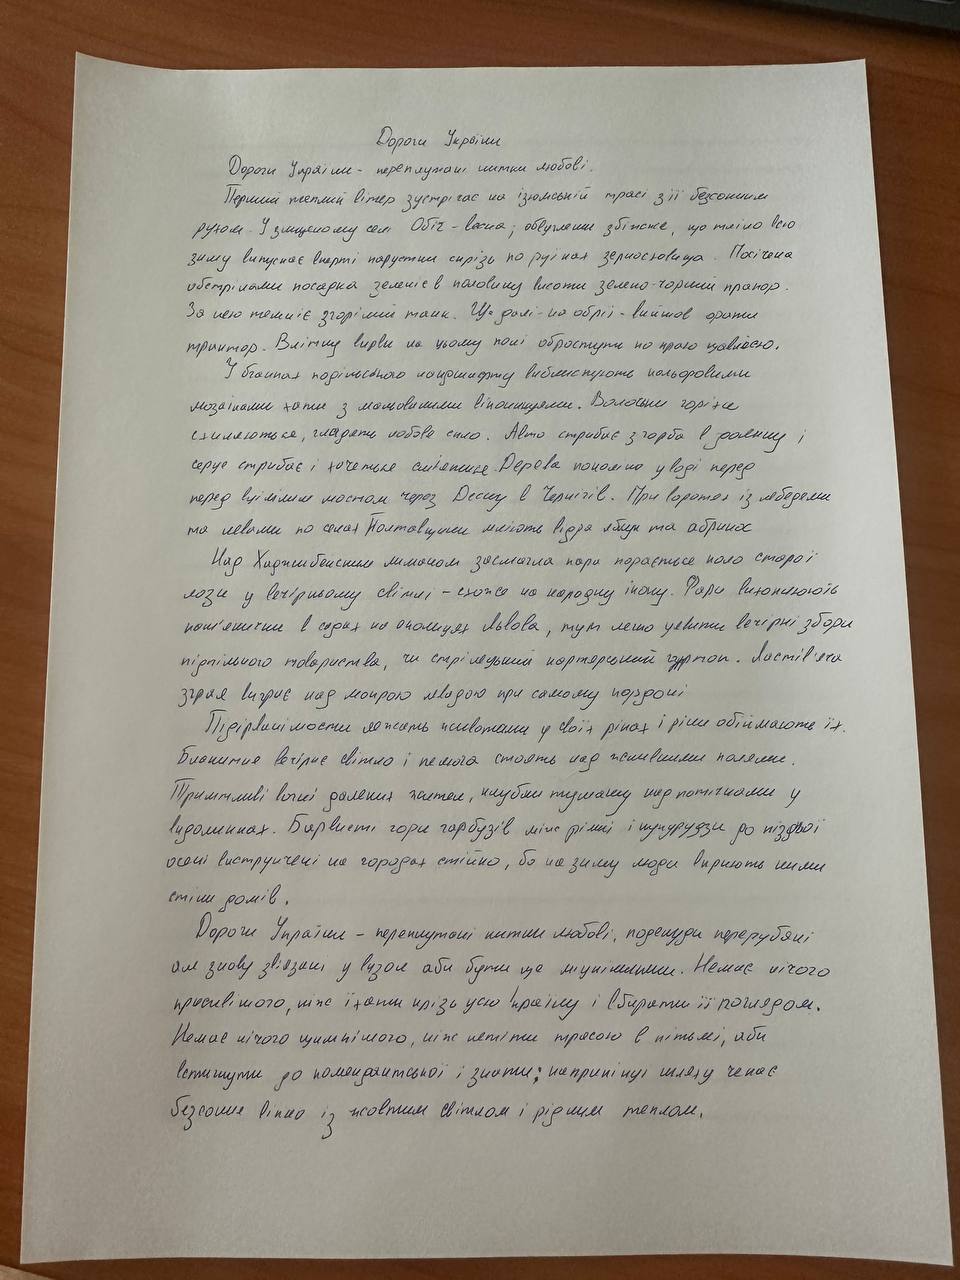 Дороги України
Дороги України - переплутані нитки любові.
Перший теплий вітер зустрічає на ізюмській трасі з її безсонним
рухом. У знищеному селі Обіч - весна; обвуглене збіжжя, що тліло всю
зиму випускає вперті паростки скрізь по руїнах зерносховища. Посічена
обстрілами посадка зеленіє в половину висоти зелено-чорний прапор.
За нею темніє згорілий танк. Ще далі - на обрії - вийшов орати
трактор. Влітку вирви на цьому полі обростуть по краю щавлією.
У бганках подільського ландшафту виблискують кольоровими
мозаїками хати з мальованими віконницями. Волоські горіхи
схиляються, гладять лобове скло. Авто стрибає з горба в долину і
серце стрибає і хочеться сміятися. Дерева по коліно у воді перед
перед вцілілим мостом через Десну в Чернігів. При воротах із лебедями
та левами по селах Полтавщини мліють відра яблук та абрикос
Над Хаджибейським лиманом засмагла пара порається коло старої
лози у вечірньому світлі - схоже на народну ікону. Фари вихоплюють
кам'янички в садах на околицях Львова, тут легко уявити вечірні збори
підпільного товариства, чи стрілецький картярський гурток. Ластів'яча
зграя виграє над мокрою левадою при самому кордоні
Підірвані мости лежать животами у своїх ріках і ріки обіймають їх.
Блакитне вечірнє світло і пелюга стоять над жнивними полями.
Тримтливі вогні далеких осель, клубки туману над потічками у
видолинках. Барвисті гори гарбузів між ріллі і кукурудзи до пізньої
осені вистрінчені на городах стійко, бо на зиму люди вкриють ними
стіни домів.
Дороги України - переплутані нитки любові, подекуди перерубані
але знову зв'язані у вузол аби бути ще міцнішими. Немає нічого
красивішого, ніж їхати крізь усю Україну і вбирати її поглядом.
Немає нічого щемкішого, ніж летіти трасою в пітьмі, аби
встигнути до комендантської і знати: наприкінці шляху чекає
безсонне вікно із жовтим світлом і рідним теплом.